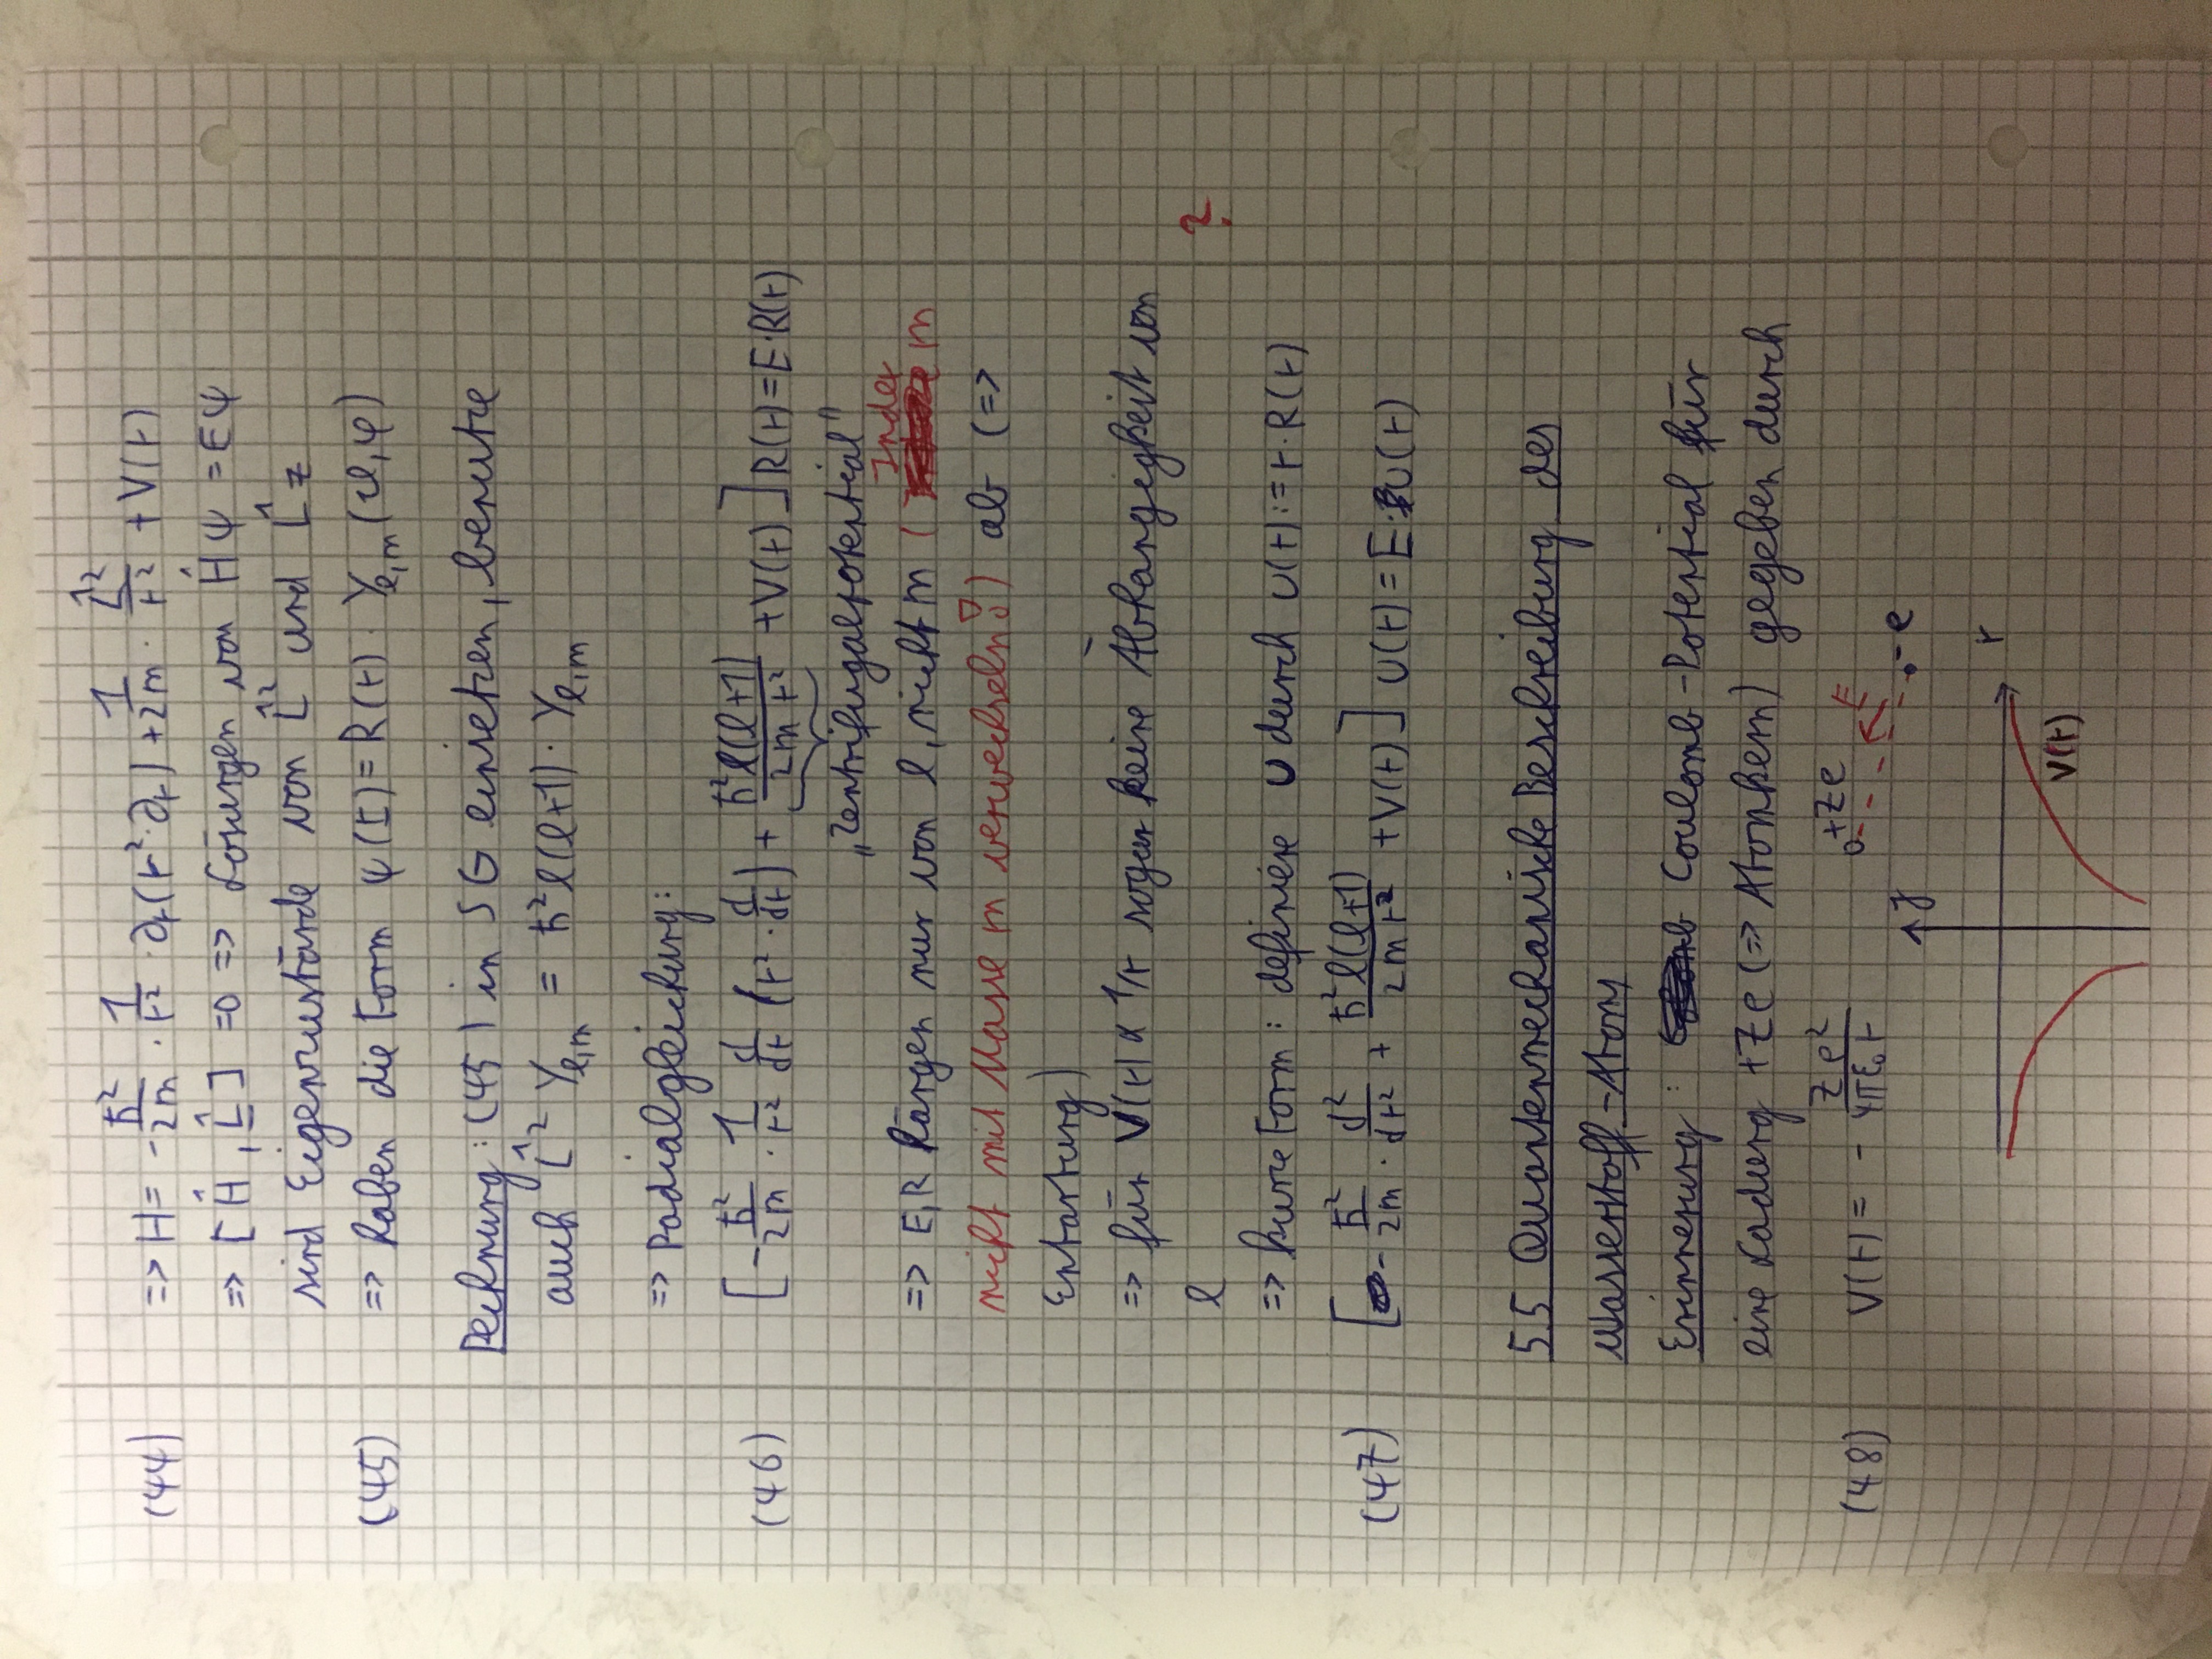 (44) => H = -ħ²/2m · 1/r² · ∂r(r²·∂r) + 1/2m · L̂²/r² + V(r)
=> [Ĥ, L̂] = 0 => Lösungen von Ĥψ = Eψ
sind Eigenzustände von L̂² und L̂z
(45) => haben die Form ψ(r) = R(r) · Yℓ,m(ϑ,φ)
Rechnung: (45) in SG einsetzen, benutze
auch L̂² Yℓ,m = ħ²ℓ(ℓ+1) · Yℓ,m
=> Radialgleichung:
(46) [-ħ²/2m · 1/r² d/dr (r² · d/dr) + ħ²ℓ(ℓ+1)/2mr² + V(r)] R(r) = E·R(r)
„Zentrifugalpotential"
=> E,R hängen nur von ℓ, nicht m (Index m
nicht mit Masse m verwechseln!) ab (=>
Entartung)
=> für V(r) ∝ 1/r sogar keine Abhängigkeit von
ℓ
?
=> kurze Form: definiere U durch U(r) := r·R(r)
(47) [-ħ²/2m · d²/dr² + ħ²ℓ(ℓ+1)/2mr² + V(r)] U(r) = E·U(r)
5.5 Quantenmechanische Beschreibung des
Wasserstoff-Atoms
Erinnerung: Coulomb-Potential für
eine Ladung +Ze (=> Atomkern) gegeben durch
(48) V(r) = - Ze²/4πε₀r
+Ze
F
-e
y
r
V(r)